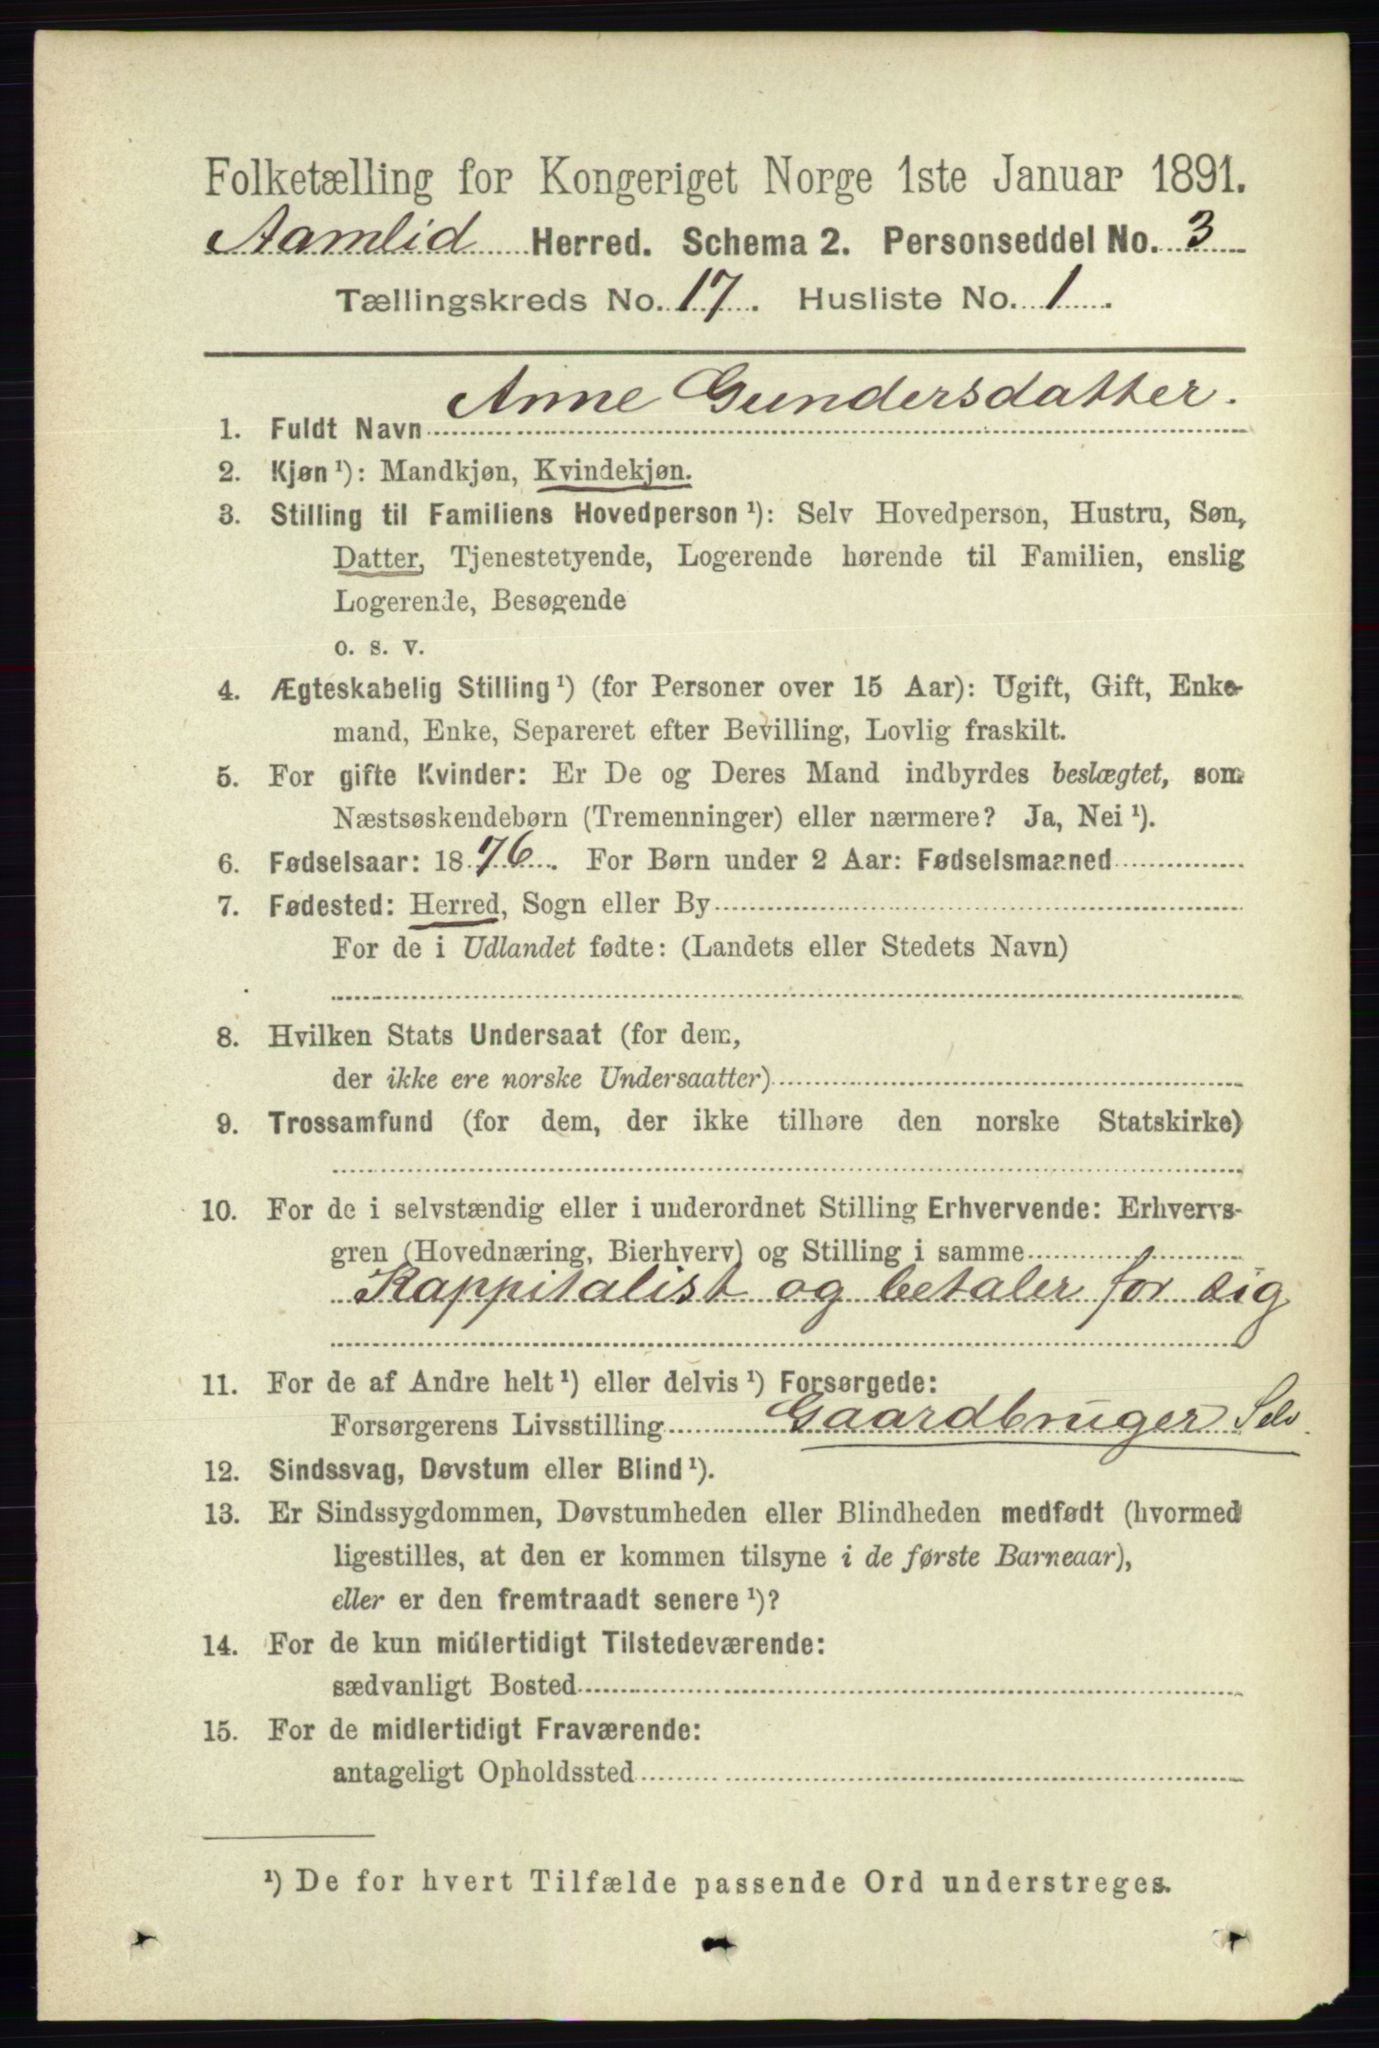 Folketælling for Kongeriget Norge 1ste Januar 1891.
Aamlid Herred. Schema 2. Personseddel No. 3
Tællingskreds No. 17. Husliste No. 1.
Anne Gundersdatter.
1. Fuldt Navn
2. Kjøn ¹): Mandkjøn, Kvindekjøn.
3. Stilling til Familiens Hovedperson ¹): Selv Hovedperson, Hustru, Søn,
Datter, Tjenestetyende, Logerende hørende til Familien, enslig
Logerende, Besøgende
o. s. v.
4. Ægteskabelig Stilling ¹) (for Personer over 15 Aar): Ugift, Gift, Enke-
mand, Enke, Separeret efter Bevilling, Lovlig fraskilt.
5. For gifte Kvinder: Er De og Deres Mand indbyrdes beslægtet, som
Næstsøskendebørn (Tremenninger) eller nærmere? Ja, Nei ¹).
6. Fødselsaar: 1876. For Børn under 2 Aar: Fødselsmaaned
7. Fødested: Herred, Sogn eller By
For de i Udlandet fødte: (Landets eller Stedets Navn)
8. Hvilken Stats Undersaat (for dem,
der ikke ere norske Undersaatter)
9. Trossamfund (for dem, der ikke tilhøre den norske Statskirke)
10. For de i selvstændig eller i underordnet Stilling Erhvervende: Erhvervs-
gren (Hovednæring, Bierhverv) og Stilling i samme
Kappitalist og betaler for sig
11. For de af Andre helt ¹) eller delvis ¹) Forsørgede:
Forsørgerens Livsstilling Gaardbruger Selv
12. Sindssvag, Døvstum eller Blind ¹).
13. Er Sindssygdommen, Døvstumheden eller Blindheden medfødt (hvormed
ligestilles, at den er kommen tilsyne i de første Barneaar),
eller er den fremtraadt senere ¹)?
14. For de kun midlertidigt Tilstedeværende:
sædvanligt Bosted
15. For de midlertidigt Fraværende:
antageligt Opholdssted
¹) De for hvert Tilfælde passende Ord understreges.